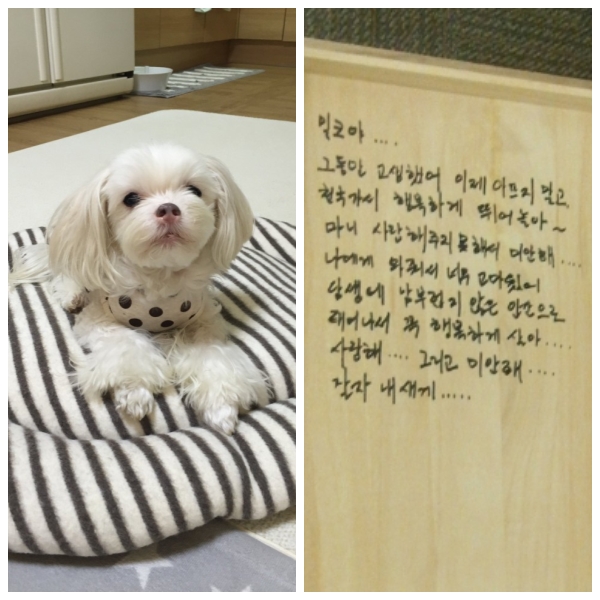 밀크야 ....
그동안 고생했어 이제 아프지 말고,
천국가서 행복하게 뛰어놀아~
마니 사랑해주지 못해서 미안해....
나에게 와줘서 너무 고마웠어
담생에 남부럽지 않은 인간으로
태어나서 꼭 행복하게 살아....
사랑해.... 그리고 미안해....
잘자 내새끼.....